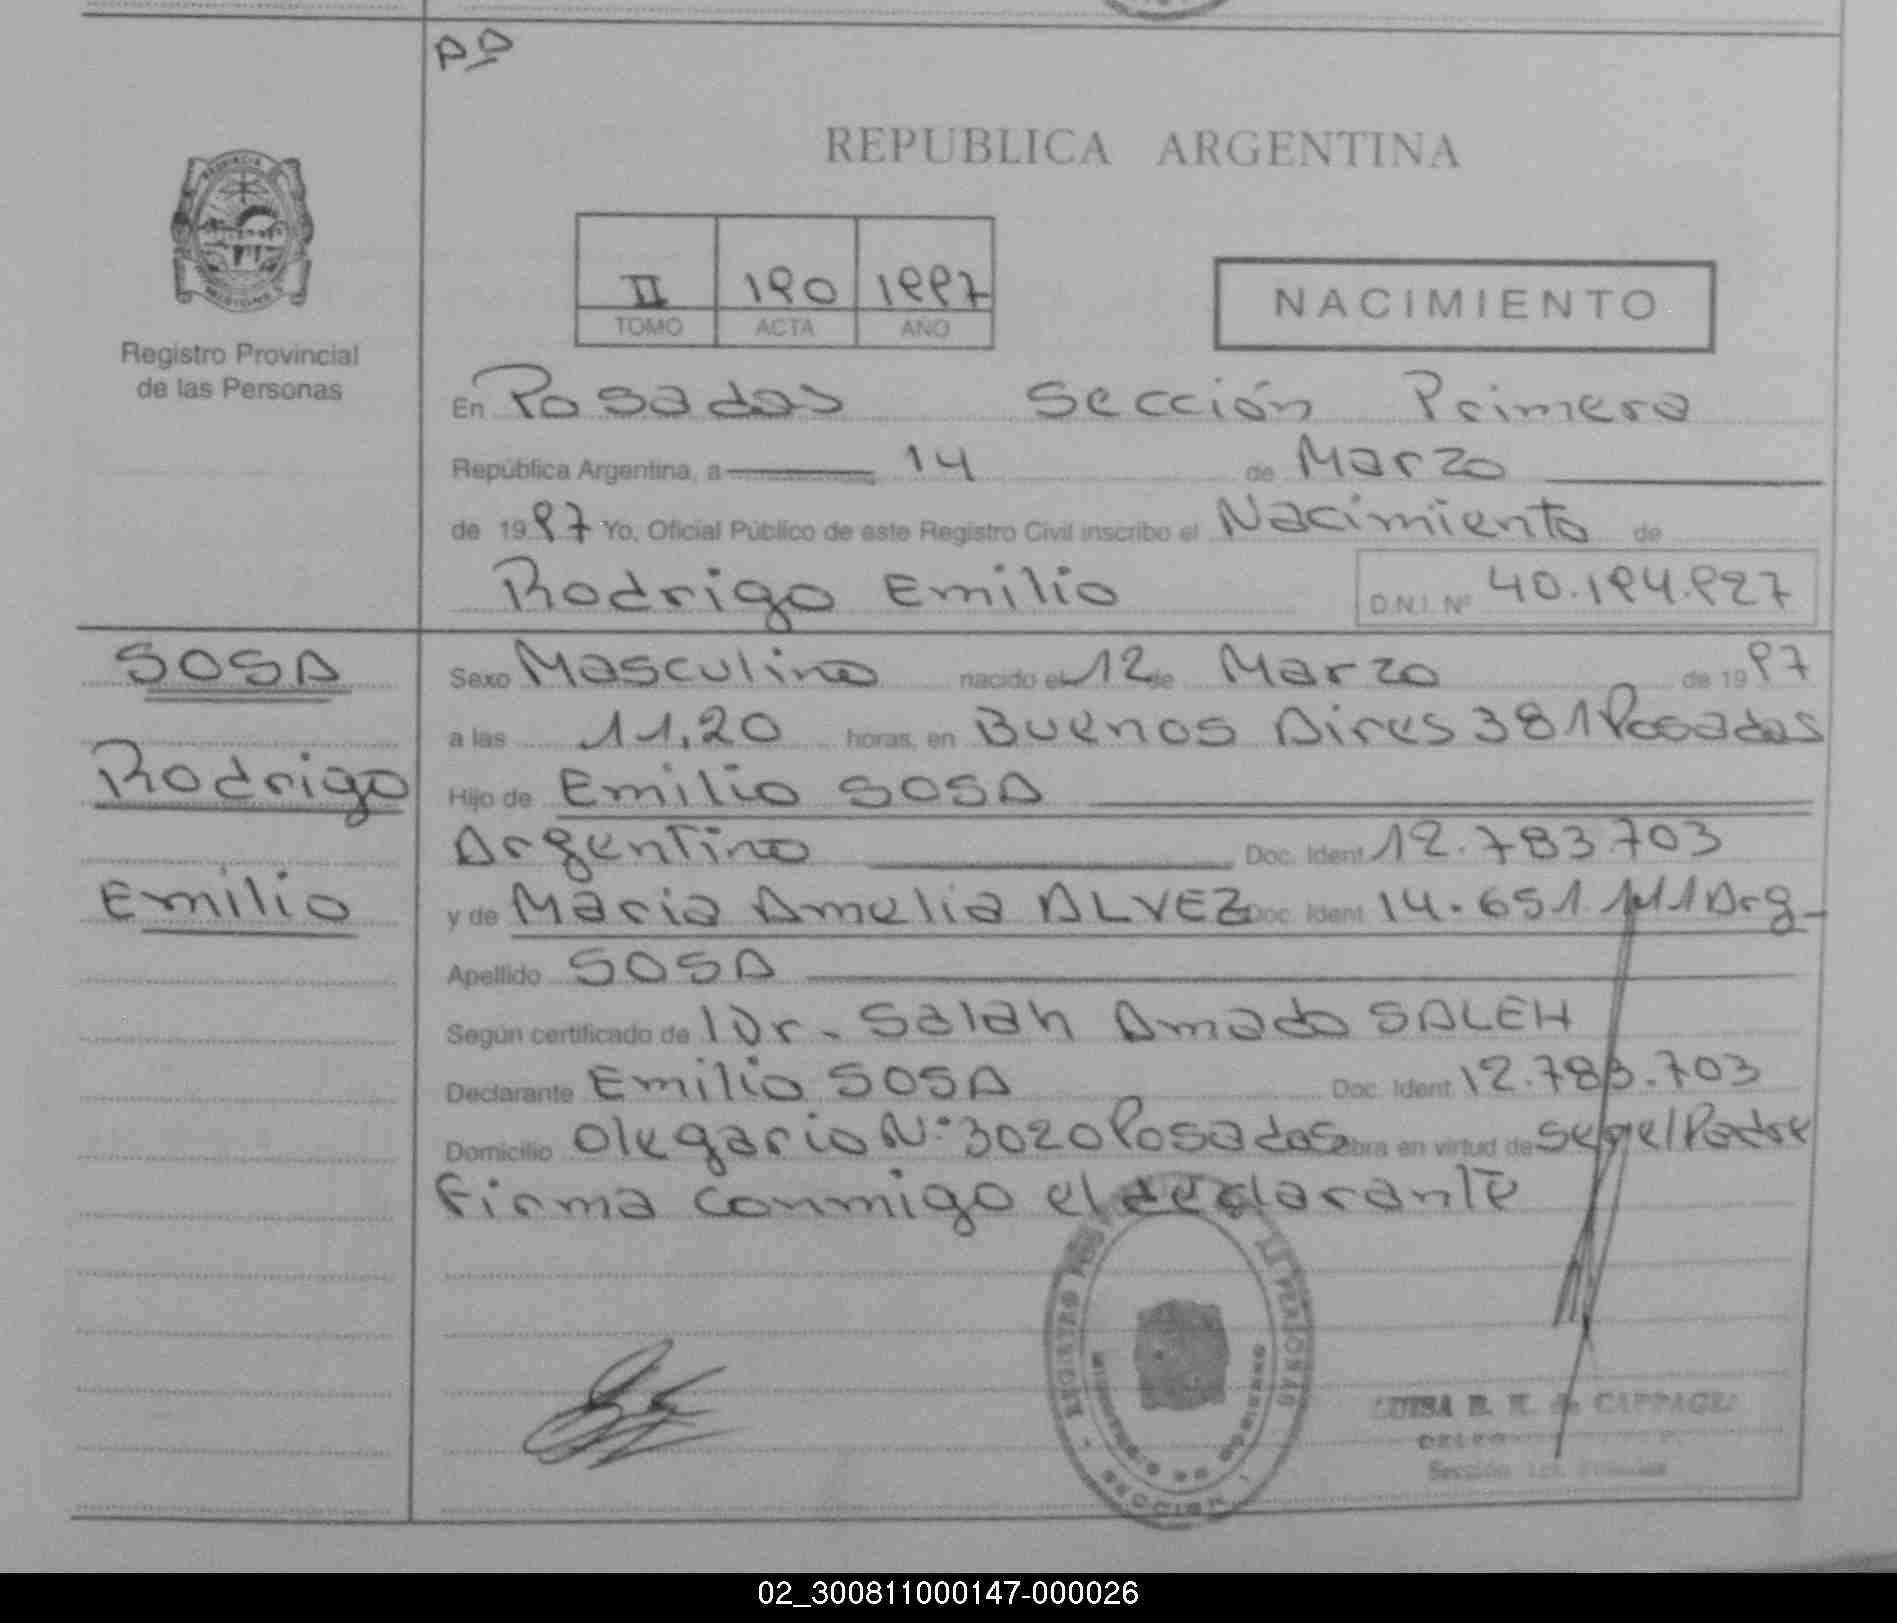 REPUBLICA ARGENTINA
II 190 1997
TOMO ACTA AÑO
NACIMIENTO
Registro Provincial
de las Personas
En Posadas Sección Primera
República Argentina, a 14 de Marzo
de 1997 Yo, Oficial Público de este Registro Civil inscribo el Nacimiento de
Rodrigo Emilio D.N.I. Nº 40.194.927
SOSA
Rodrigo
Emilio
Sexo Masculino nacido el 12 de Marzo de 1997
a las 11,20 horas, en Buenos Aires 381 Posadas
Hijo de Emilio SOSA
Argentino Doc. Ident 12.783.703
y de Maria Amelia ALVEZ Doc. Ident 14.651.141 Arg-
Apellido SOSA
Según certificado de Dr. Salah Amado SALEH
Declarante Emilio SOSA Doc. Ident 12.783.703
Domicilio Olegario Nº 3020 Posadas obra en virtud de ser el Padre
Firma conmigo el declarante
SECCION
LUISA
Sección
02_300811000147-000026